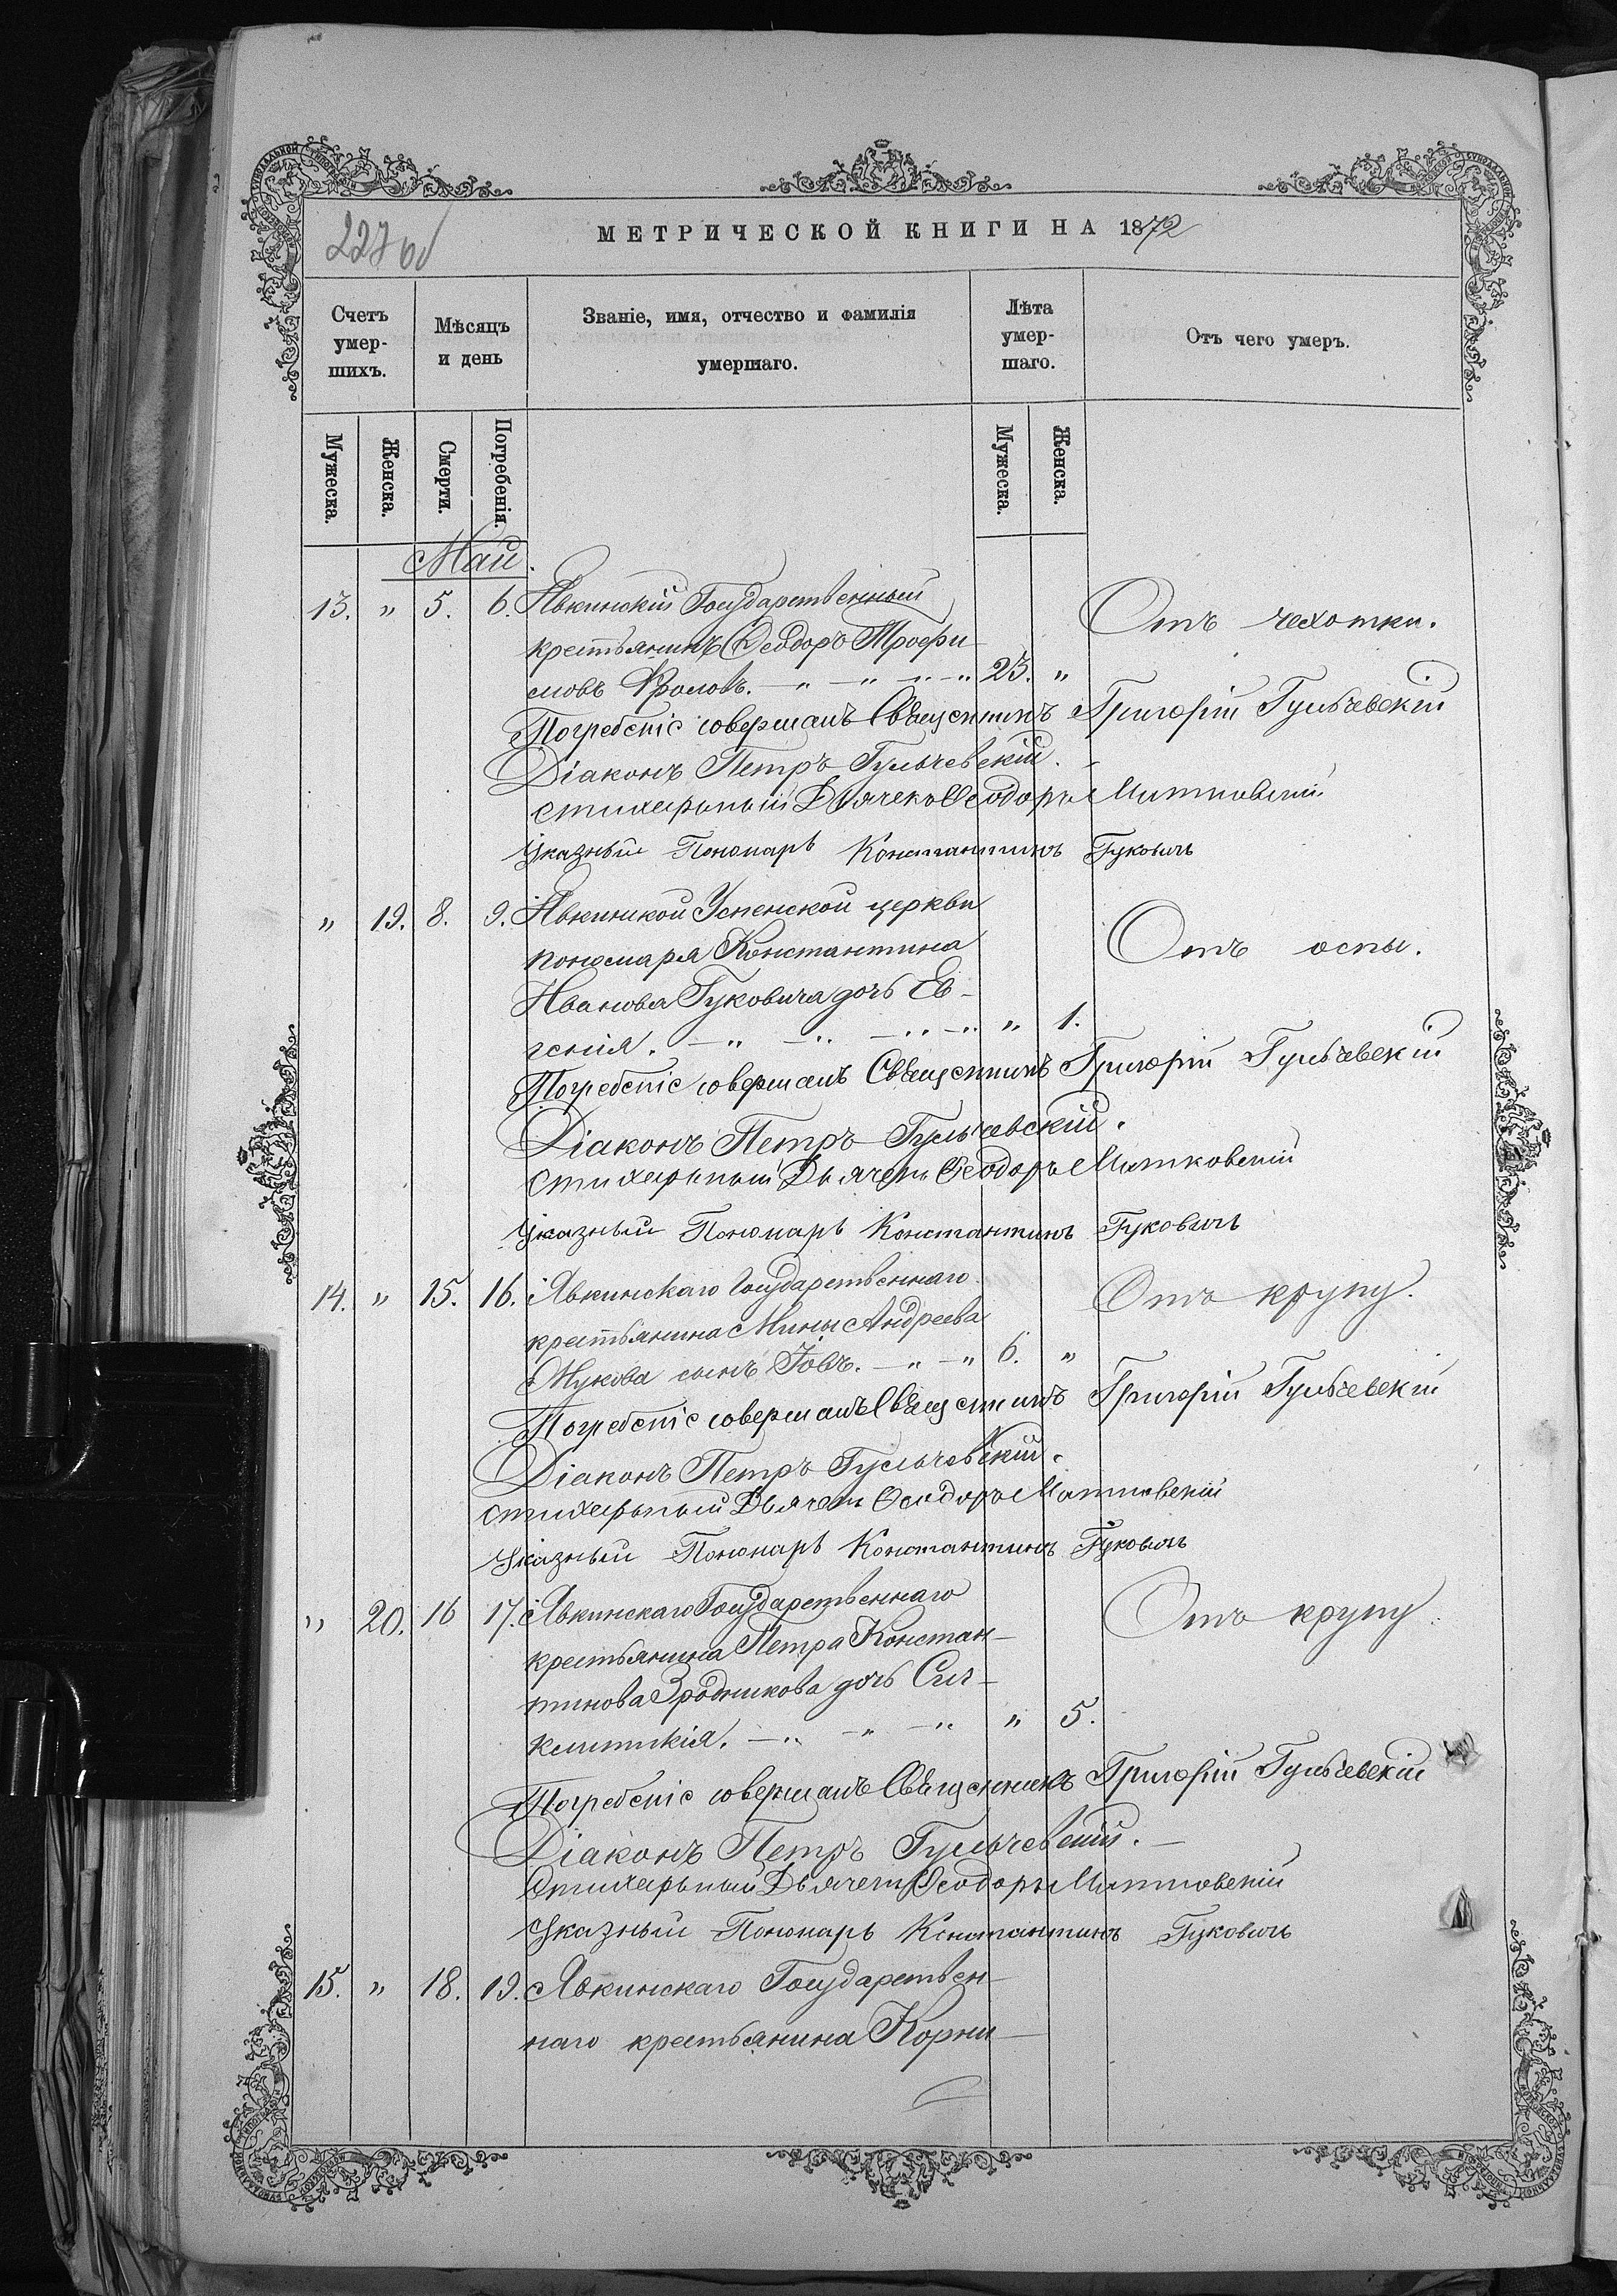 227 об
МЕТРИЧЕСКОЙ КНИГИ НА 1872
Счетъ умер-шихъ.
Мѣсяцъ и день
Званіе, имя, отчество и фамилія умершаго.
Лѣта умер-шаго.
Отъ чего умеръ.
Мужеска. Женска. Смерти. Погребенія. Мужеска. Женска.
Май.
13. " 5. 6. Явкинскій Государственный Отъ чахотки.
крестьянинъ Ѳеодоръ Трофи-
мовъ Фроловъ. — " — " — " 23. "
Погребеніе совершалъ Священникъ Григорій Гульчевскій
Діаконъ Петръ Гульчевскій.
Стихарный Дьячекъ Ѳеодоръ Митковскій
Указный Пономарь Константинъ Гуковичъ
" 19. 8. 9. Явкинской Успенской церкви Отъ оспы.
пономаря Константина
Иванова Гуковича дочь Ев-
генія. — " — " — " — " " 1.
Погребеніе совершалъ Священникъ Григорій Гульчевскій
Діаконъ Петръ Гульчевскій.
Стихарный Дьячекъ Ѳеодоръ Митковскій
Указный Пономарь Константинъ Гуковичъ
14. " 15. 16. Явкинскаго Государственнаго Отъ крупу.
крестьянина Мины Андреева
Жукова сынъ Іовъ. — " — " 6. "
Погребеніе совершалъ Священникъ Григорій Гульчевскій
Діаконъ Петръ Гульчевскій.
Стихарный Дьячекъ Ѳеодоръ Митковскій
Указный Пономарь Константинъ Гуковичъ
" 20. 16 17. Явкинскаго Государственнаго Отъ крупу.
крестьянина Петра Констан-
тинова Зродникова дочь Син-
клитикія. — " — " — " " 5.
Погребеніе совершалъ Священникъ Григорій Гульчевскій
Діаконъ Петръ Гульчевскій. —
Стихарный Дьячекъ Ѳеодоръ Митковскій
Указный Пономарь Константинъ Гуковичъ
15. " 18. 19. Явкинскаго Государствен-
наго крестьянина Корни-